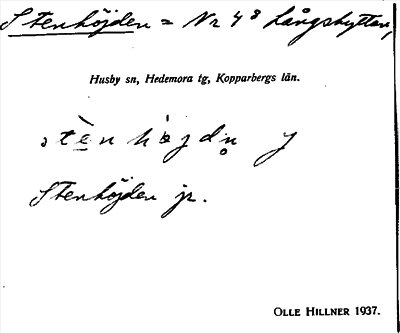 Stenhöjden = Nr 4⁸ Långshyttan,
Husby sn, Hedemora tg, Kopparbergs län.
Stenhöjden jr.
OLLE HILLNER 1937.